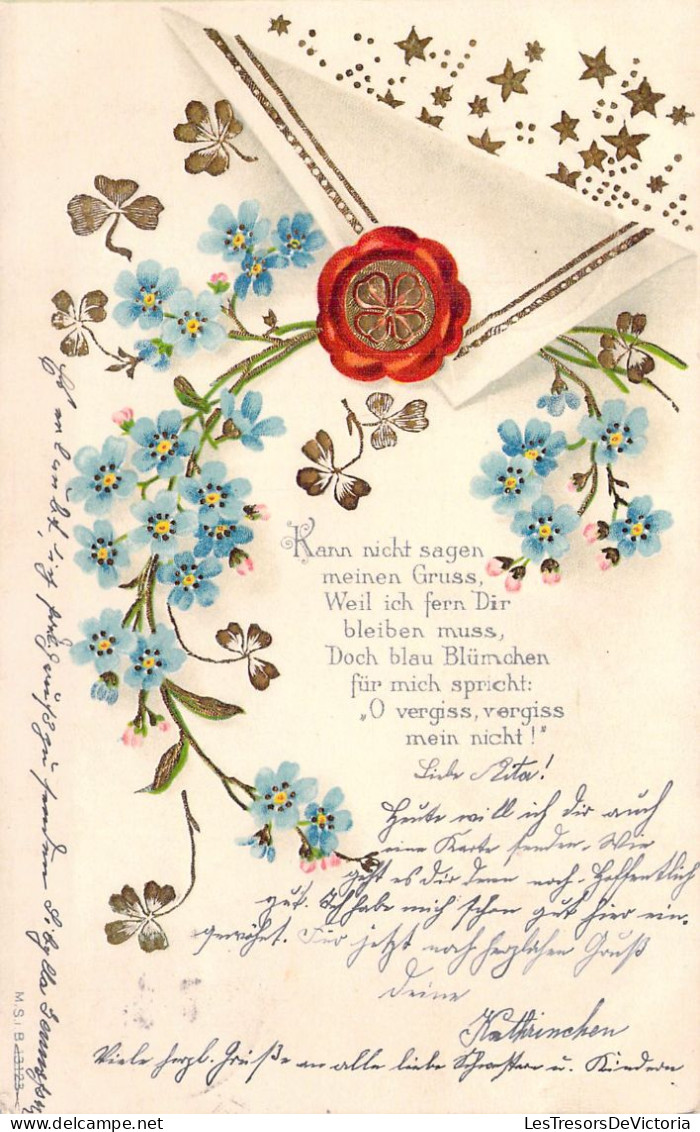 Kann nicht sagen
meinen Gruss,
Weil ich fern Dir
bleiben muss,
Doch blau Blümchen
für mich spricht:
„O vergiss, vergiss
mein nicht!"
Liebe Rita!
Heute will ich dir auch
eine Karte senden. Wie
geht es dir denn noch. Hoffentlich
gut. Ich habe mich schon gut hier ein-
gewöhnt. Für jetzt noch herzlichen Gruß
deine
Kathrinchen
Viele herzl. Grüße an alle liebe Schwestern u. Kindern
M.S.i.B. 13123
LesTresorsDeVictoria